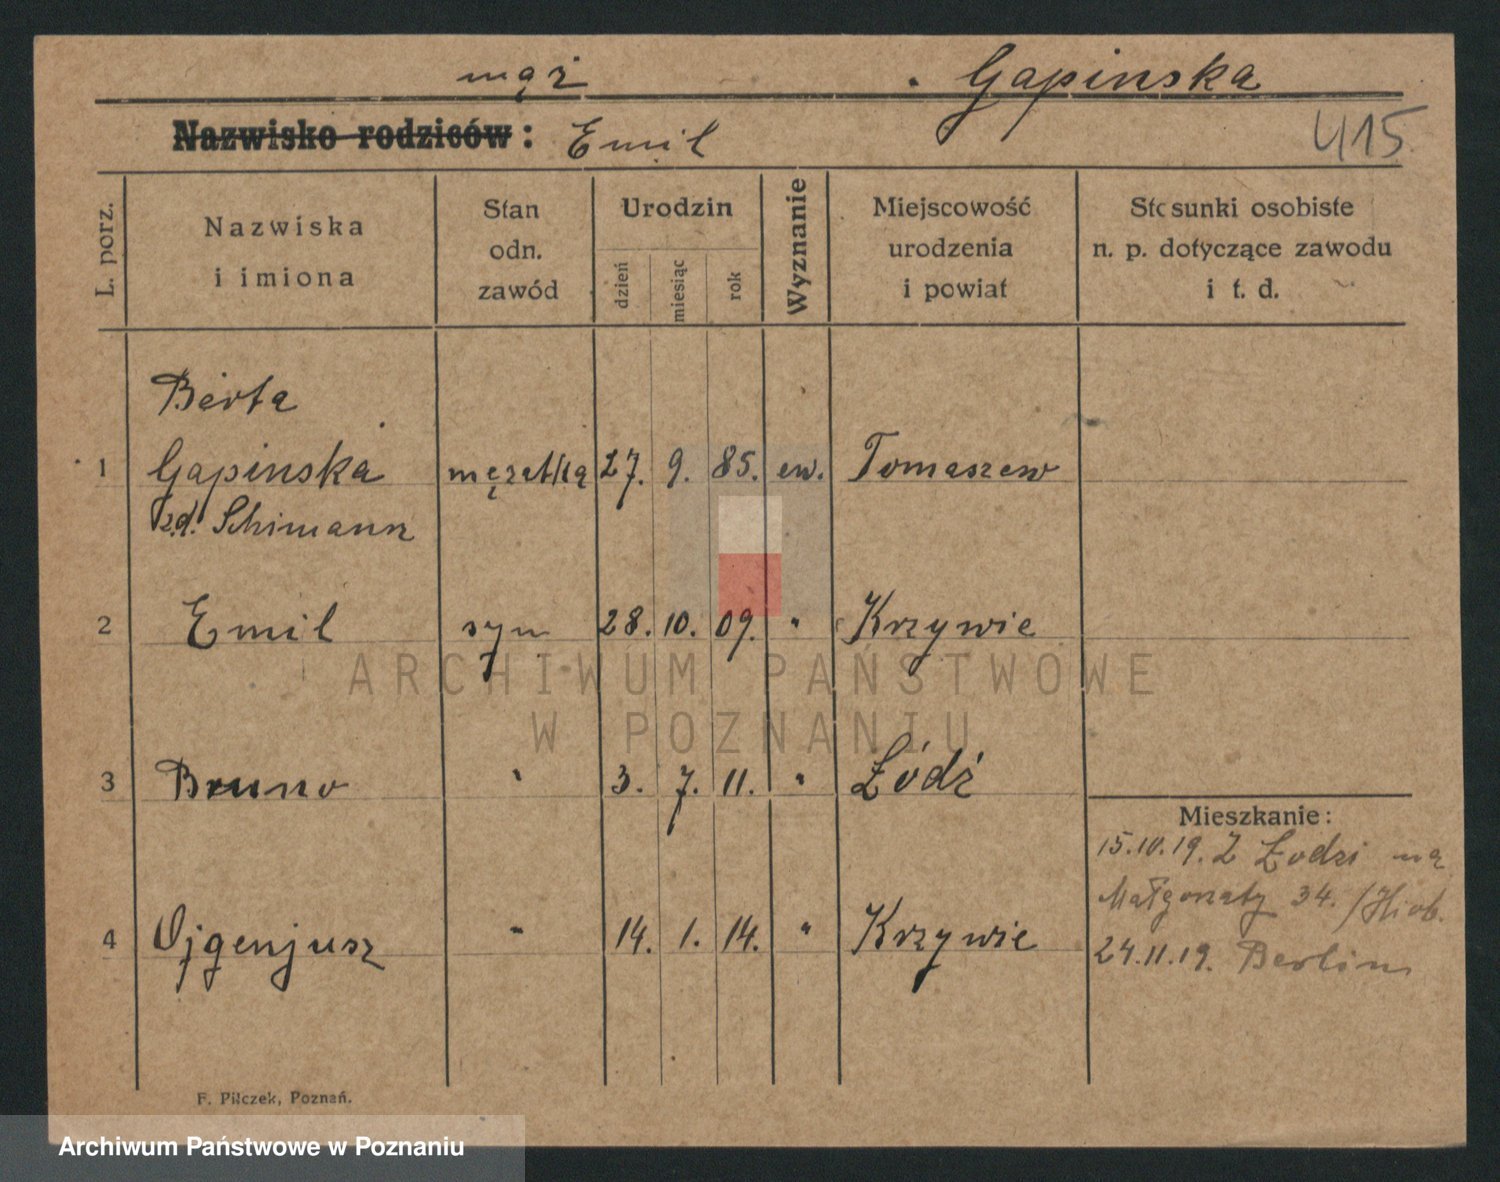 mąż Gapinska
Nazwisko rodziców: Emil 415
L. porz.
Nazwiska
i imiona
Stan
odn.
zawód
Urodzin
dzień
miesiąc
rok
Wyznanie
Miejscowość
urodzenia
i powiat
Stosunki osobiste
n. p. dotyczące zawodu
i t. d.
Berta
1 Gapinska mężatka 27. 9. 85. ew. Tomaszew
zd. Schimann
2 Emil syn 28. 10. 09. " Krzywie
ARCHIWUM PAŃSTWOWE
W POZNANIU
3 Bruno " 3. 7. 11. " Łódź
Mieszkanie:
15.10.19. Z Łodzi na
Małgorzaty 34. /Hiob.
4 Ojgenjusz " 14. 1. 14. " Krzywie
24.11.19. Berlin
F. Pilczek, Poznań.
Archiwum Państwowe w Poznaniu